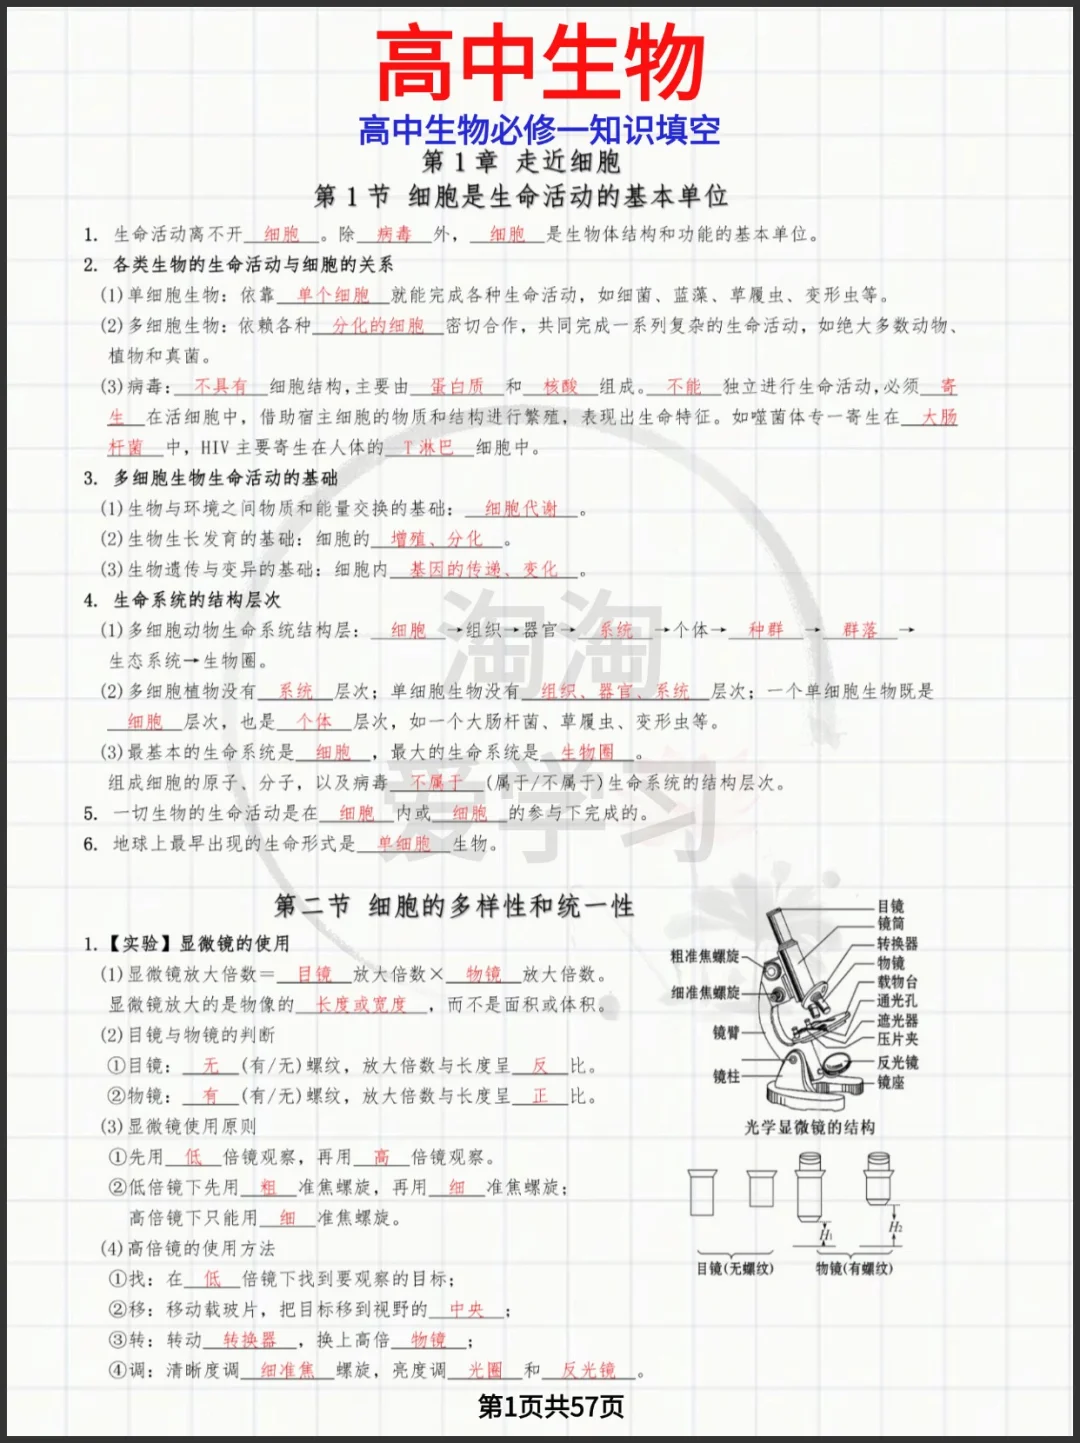 高中生物
高中生物必修一知识填空
第 1 章 走近细胞
第 1 节 细胞是生命活动的基本单位
1. 生命活动离不开 细胞 。除 病毒 外， 细胞 是生物体结构和功能的基本单位。
2. 各类生物的生命活动与细胞的关系
(1)单细胞生物：依靠 单个细胞 就能完成各种生命活动，如细菌、蓝藻、草履虫、变形虫等。
(2)多细胞生物：依赖各种 分化的细胞 密切合作，共同完成一系列复杂的生命活动，如绝大多数动物、
植物和真菌。
(3)病毒： 不具有 细胞结构，主要由 蛋白质 和 核酸 组成。 不能 独立进行生命活动，必须 寄
生 在活细胞中，借助宿主细胞的物质和结构进行繁殖，表现出生命特征。如噬菌体专一寄生在 大肠
杆菌 中，HIV 主要寄生在人体的 T 淋巴 细胞中。
3. 多细胞生物生命活动的基础
(1)生物与环境之间物质和能量交换的基础： 细胞代谢 。
(2)生物生长发育的基础：细胞的 增殖、分化 。
(3)生物遗传与变异的基础：细胞内 基因的传递、变化 。
4. 生命系统的结构层次
(1)多细胞动物生命系统结构层： 细胞 →组织→器官→ 系统 →个体→ 种群 → 群落 →
生态系统→生物圈。
(2)多细胞植物没有 系统 层次；单细胞生物没有 组织、器官、系统 层次；一个单细胞生物既是
细胞 层次，也是 个体 层次，如一个大肠杆菌、草履虫、变形虫等。
(3)最基本的生命系统是 细胞 ，最大的生命系统是 生物圈 。
组成细胞的原子、分子，以及病毒 不属于 (属于/不属于)生命系统的结构层次。
5. 一切生物的生命活动是在 细胞 内或 细胞 的参与下完成的。
6. 地球上最早出现的生命形式是 单细胞 生物。
淘淘
爱学习
第二节 细胞的多样性和统一性
1.【实验】显微镜的使用
(1)显微镜放大倍数＝ 目镜 放大倍数× 物镜 放大倍数。
显微镜放大的是物像的 长度或宽度 ，而不是面积或体积。
(2)目镜与物镜的判断
①目镜： 无 (有/无)螺纹，放大倍数与长度呈 反 比。
②物镜： 有 (有/无)螺纹，放大倍数与长度呈 正 比。
(3)显微镜使用原则
①先用 低 倍镜观察，再用 高 倍镜观察。
②低倍镜下先用 粗 准焦螺旋，再用 细 准焦螺旋；
高倍镜下只能用 细 准焦螺旋。
(4)高倍镜的使用方法
①找：在 低 倍镜下找到要观察的目标；
②移：移动载玻片，把目标移到视野的 中央 ；
③转：转动 转换器 ，换上高倍 物镜 ；
④调：清晰度调 细准焦 螺旋，亮度调 光圈 和 反光镜 。
目镜
镜筒
转换器
物镜
载物台
通光孔
遮光器
压片夹
反光镜
镜座
粗准焦螺旋
细准焦螺旋
镜臂
镜柱
光学显微镜的结构
H₁
H₂
目镜(无螺纹)
物镜(有螺纹)
第1页共57页